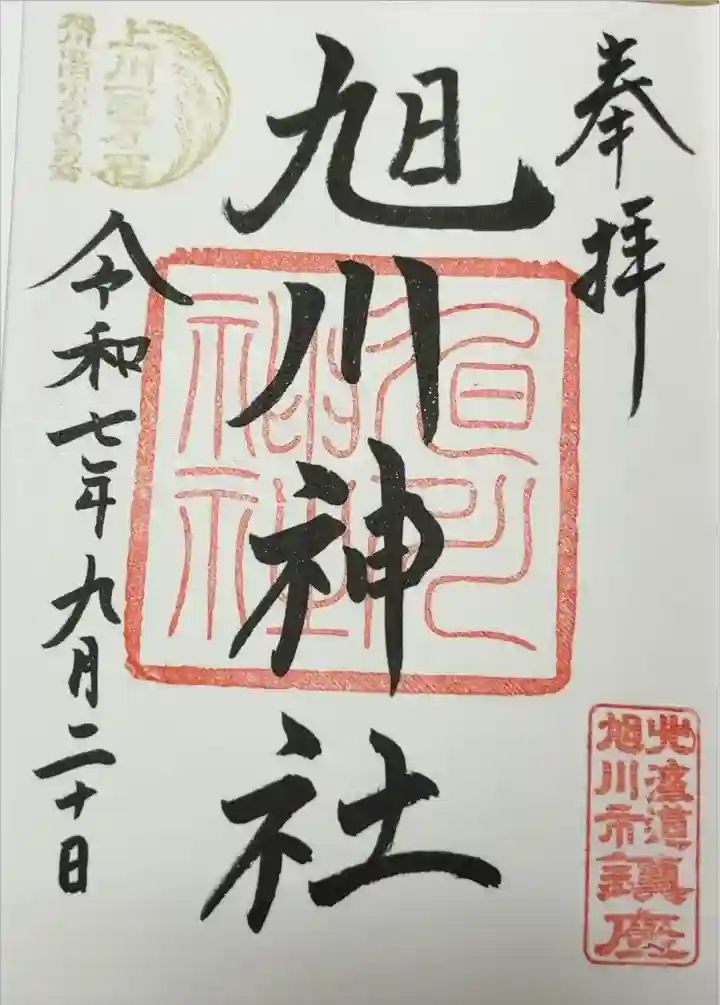 奉拝
旭川神社
令和七年九月二十日
旭川神社
北海道
旭川市鎮座